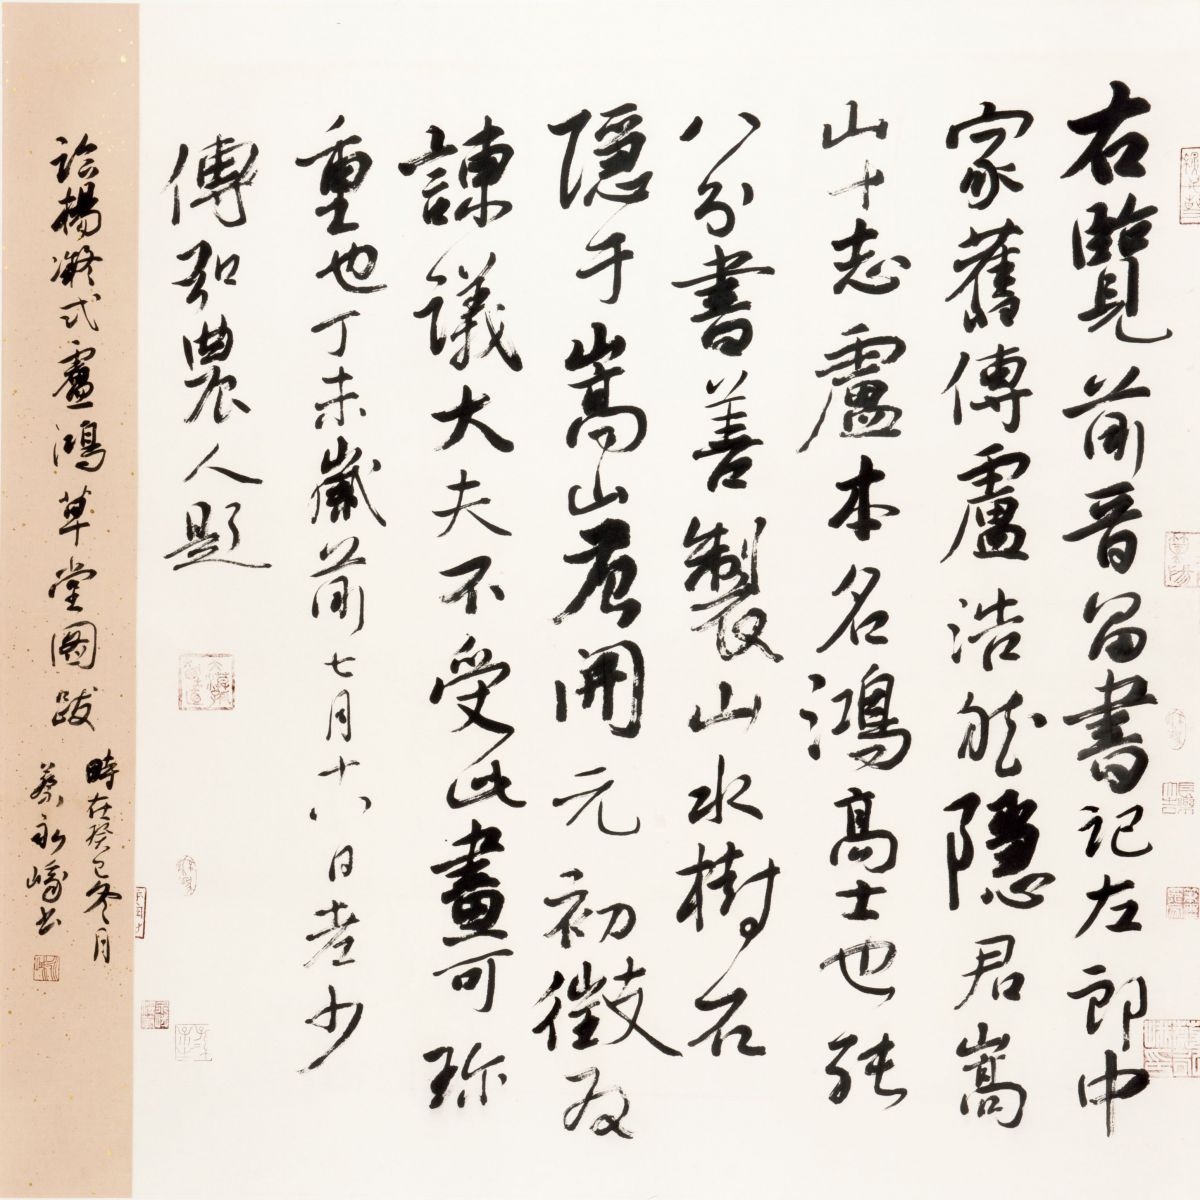 右覽前晉昌書記左郎中
家舊傳盧浩然隱君嵩
山十志盧本名鴻高士也能
八分書善製山水樹石
隱于嵩山唐開元初徵為
諫議大夫不受此畫可珍
重也丁未歲前七月十八日老少
傅弘農人題
論楊凝式盧鴻草堂圖跋
時在癸巳冬月
蔡永峰書